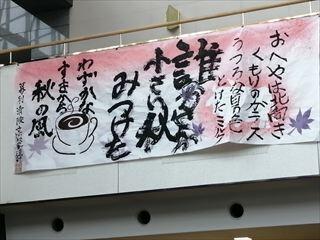 おへやは北向き
くもりのガラス
うつろな目の色
とかしたミルク
誰かさんが
小さい秋
みつけた
わずかな
すきから
秋の風